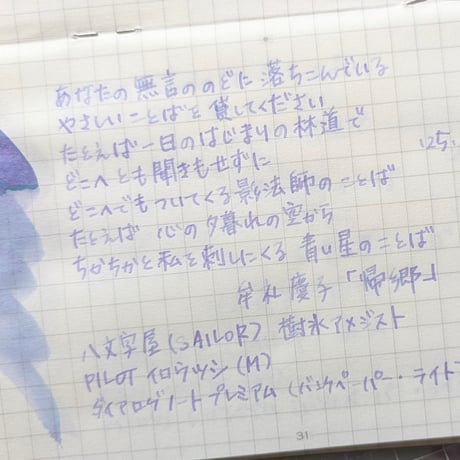 あなたの無言ののどに落ちこんでいる
やさしいことばを貸してください
たとえば一日のはじまりの林道で
どこへとも聞きもせずに
どこへでもついてくる影法師のことば
たとえば 心の夕暮れの空から
ちかちかと私を刺しにくる 青い星のことば
牟礼慶子「帰郷」
八文字屋(SAILOR) 樹氷アメジスト
PILOT イロウツシ(M)
ダイアログノートプレミアム(バンクペーパー・ライト
125.
31